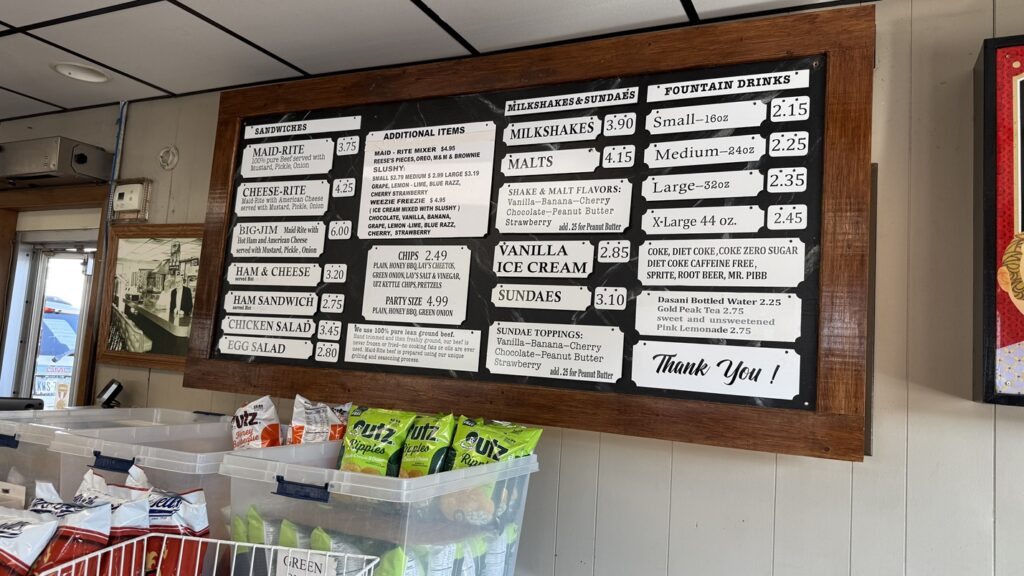 SANDWICHES
MAID-RITE 3.75
100% pure Beef served with
Mustard, Pickle, Onion
CHEESE-RITE 4.25
Maid-Rite with American Cheese
served with Mustard, Pickle, Onion
BIG-JIM Maid-Rite with 6.00
Hot Ham and American Cheese
served with Mustard, Pickle, Onion
HAM & CHEESE 3.20
served Hot
HAM SANDWICH 2.75
served Hot
CHICKEN SALAD 3.45
EGG SALAD 2.80
ADDITIONAL ITEMS
MAID - RITE MIXER $4.95
REESE'S PIECES,OREO, M&M & BROWNIE
SLUSHY:
SMALL $2.79 MEDIUM $ 2.99 LARGE $3.19
GRAPE, LEMON - LIME, BLUE RAZZ,
CHERRY STRAWBERRY
WEEZIE FREEZIE $ 4.95
( ICE CREAM MIXED WITH SLUSHY )
CHOCOLATE, VANILLA, BANANA,
GRAPE, LEMON -LIME, BLUE RAZZ,
CHERRY, STRAWBERRY
CHIPS 2.49
PLAIN, HONEY BBQ, LAY'S CHEETOS,
GREEN ONION, LAY'S SALT & VINEGAR,
UTZ KETTLE CHIPS, PRETZELS
PARTY SIZE 4.99
PLAIN, HONEY BBQ, GREEN ONION
We use 100% pure lean ground beef.
Hand trimmed and then freshly ground, our beef is
never frozen or fried-no cooking fats or oils are ever
used. Maid-Rite beef is prepared using our unique
grilling and seasoning process.
MILKSHAKES & SUNDAES
MILKSHAKES 3.90
MALTS 4.15
SHAKE & MALT FLAVORS:
Vanilla—Banana—Cherry
Chocolate—Peanut Butter
Strawberry
add .25 for Peanut Butter
VANILLA 2.85
ICE CREAM
SUNDAES 3.10
SUNDAE TOPPINGS:
Vanilla—Banana—Cherry
Chocolate—Peanut Butter
Strawberry
add .25 for Peanut Butter
FOUNTAIN DRINKS
Small—16oz 2.15
Medium—24oz 2.25
Large—32oz 2.35
X-Large 44 oz. 2.45
COKE, DIET COKE, COKE ZERO SUGAR
DIET COKE CAFFEINE FREE,
SPRITE, ROOT BEER, MR. PIBB
Dasani Bottled Water 2.25
Gold Peak Tea 2.75
sweet and unsweetened
Pink Lemonade 2.75
Thank You !
Utz
Honey
Utz
Ripples
Utz
Ripples
Utz
Ripples
GREEN